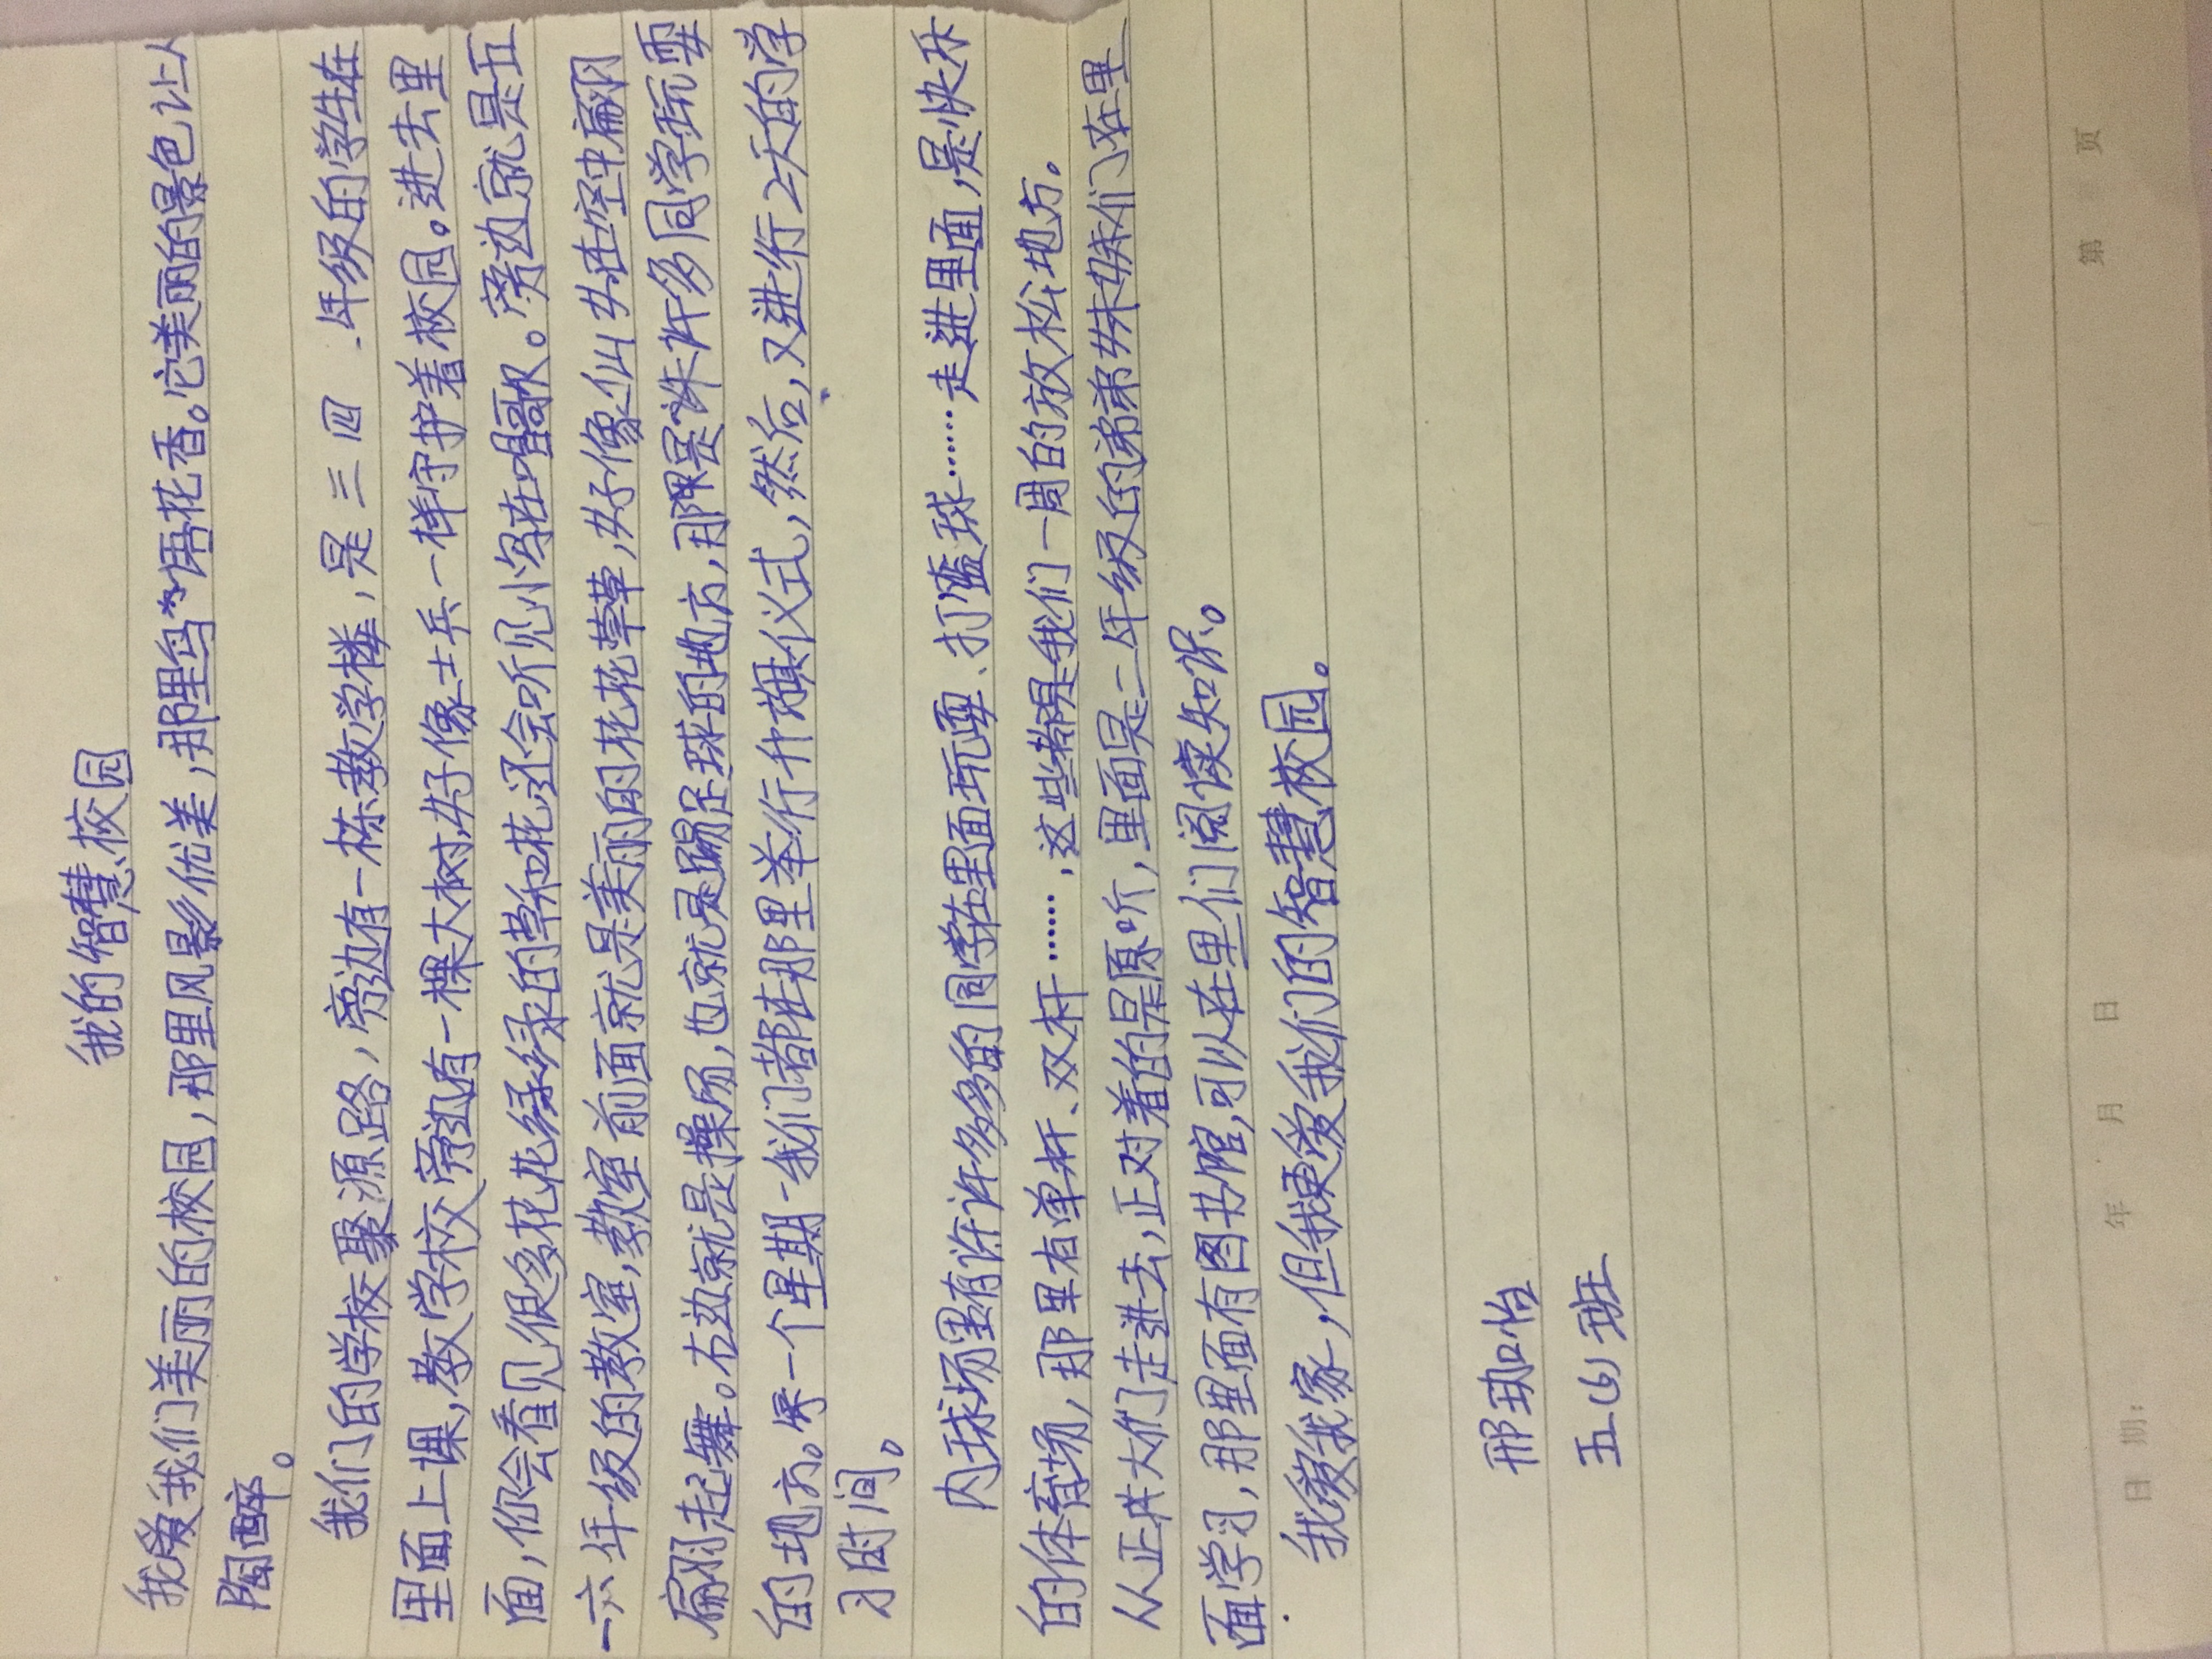 我的智慧校园
我爱我们美丽的校园,那里风景优美,那里鸟语花香。它美丽的景色让人
陶醉。
我们的学校聚源路,旁边有一栋教学楼,是三四 年级的学生在
里面上课,教学校旁边有一棵大树,好像士兵一样守护着校园。进去里
面,你会看见很多花花绿绿的草和花,还会听见小鸟在唱歌。旁边就是五
一六年级的教室,教室前面就是美丽的花花草草,好像仙女在空中翩翩
翩翩起舞。右边就是操场,也就是踢足球的地方,那里是许许多多同学玩耍
的地方。每一个星期一我们都在那里举行升旗仪式,然后,又进行2天的学
习时间。
内球场里有许许多多的同学在里面玩耍、打篮球……走进里面,是快乐
的体育场,那里有单杆、双杆……,这些都是我们一周的放松地方。
从正大们走进去,正对着的是原听,里面是二年级的弟弟妹妹们在里
面学习,那里面有图书馆,可以在里们阅读知识。
我爱我家,但我更爱我们的智慧校园。
邢珈怡
五(6)班
日期: 年 月 日 第 页